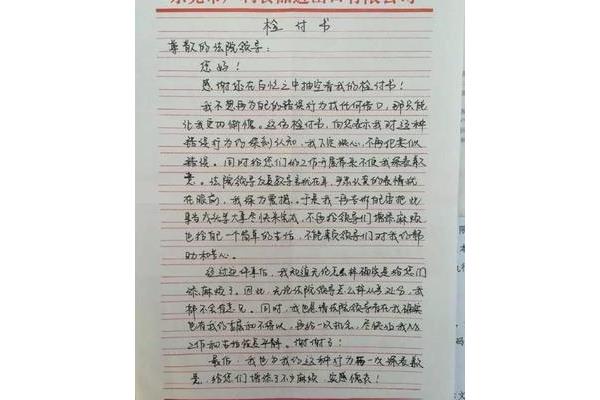 检付书
尊敬的法院领导:
您好!
感谢您在百忙之中抽空看我的检付书!
我不想再为自己的错误行为找任何借口,那只能
让我更加惭愧。这份检付书,向您表示我对这种
错误行为的深刻认知,我下定决心,不再犯类似
错误。同时给您们的工作开展带来不便我深表歉
意。法院领导反复教导言犹在耳,严肃认真的表情犹
在眼前,我深为震撼。于是我一再告诉自己把此
事当成头等大事尽快来完成,不再给领导们增添麻烦
也给自己一个简单的生活,不能辜负领导们对我的帮
助和苦心。
经过这件事后,我知道无论怎么样确实是给您们
添麻烦了。因此,无论法院领导怎么样从严处分,我
都不会有意见。同时,我也恳请法院领导看在我确实
也有我的苦衷和不得已,再给一次机会,尽快让我的
工作和生活恢复平静。谢谢了!
最后,我也为我的这种行为再一次深表歉
意,给您们增添了不少麻烦,实感愧疚!